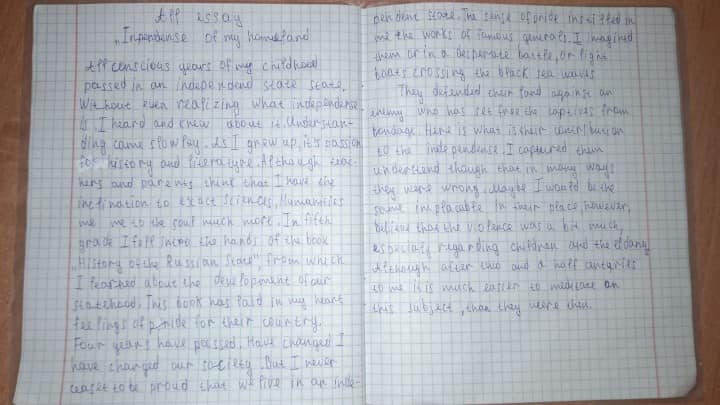 Aff essay
"Inpendense of my homeland
Aff conscious years of my childhood
passed in an independend state state.
Without even realizing what independense
is, I heard and knew about it. Understan-
ding came slowlay. As I grew up, it's passion
for history and literatyre. Although teac-
hers and parents think that I have the
inclination to exact sciences, Humanities
me me to the soul much more. In fifth
grade I fell intro the hands of the book
"History of the Russian State", from which
I learned about the development of our
statehood. This book has laid in my heart
feelings of pride for their country.
Four years have passed. Have changed I
have changed our society. But I never
ceaset to be proud that we live in an inde-
pendent state. The sense of pride instilled in
me the works of famous generals. I imagined
them or in a desperate battle, or light
boats crossing the black sea waves
They defended their land against an
enemy who has set free the captives from
bondage. Here is what is their contribution
to the independense. I captured them
understend though that in many ways
they were wrong. Maybe I would be the
same implacable in their place, however,
believe that the violence was a bit much,
especially regarding children and the eldany
Although after two and a half centuries
to me it is much easier to meditate on
this subject, than they were then.